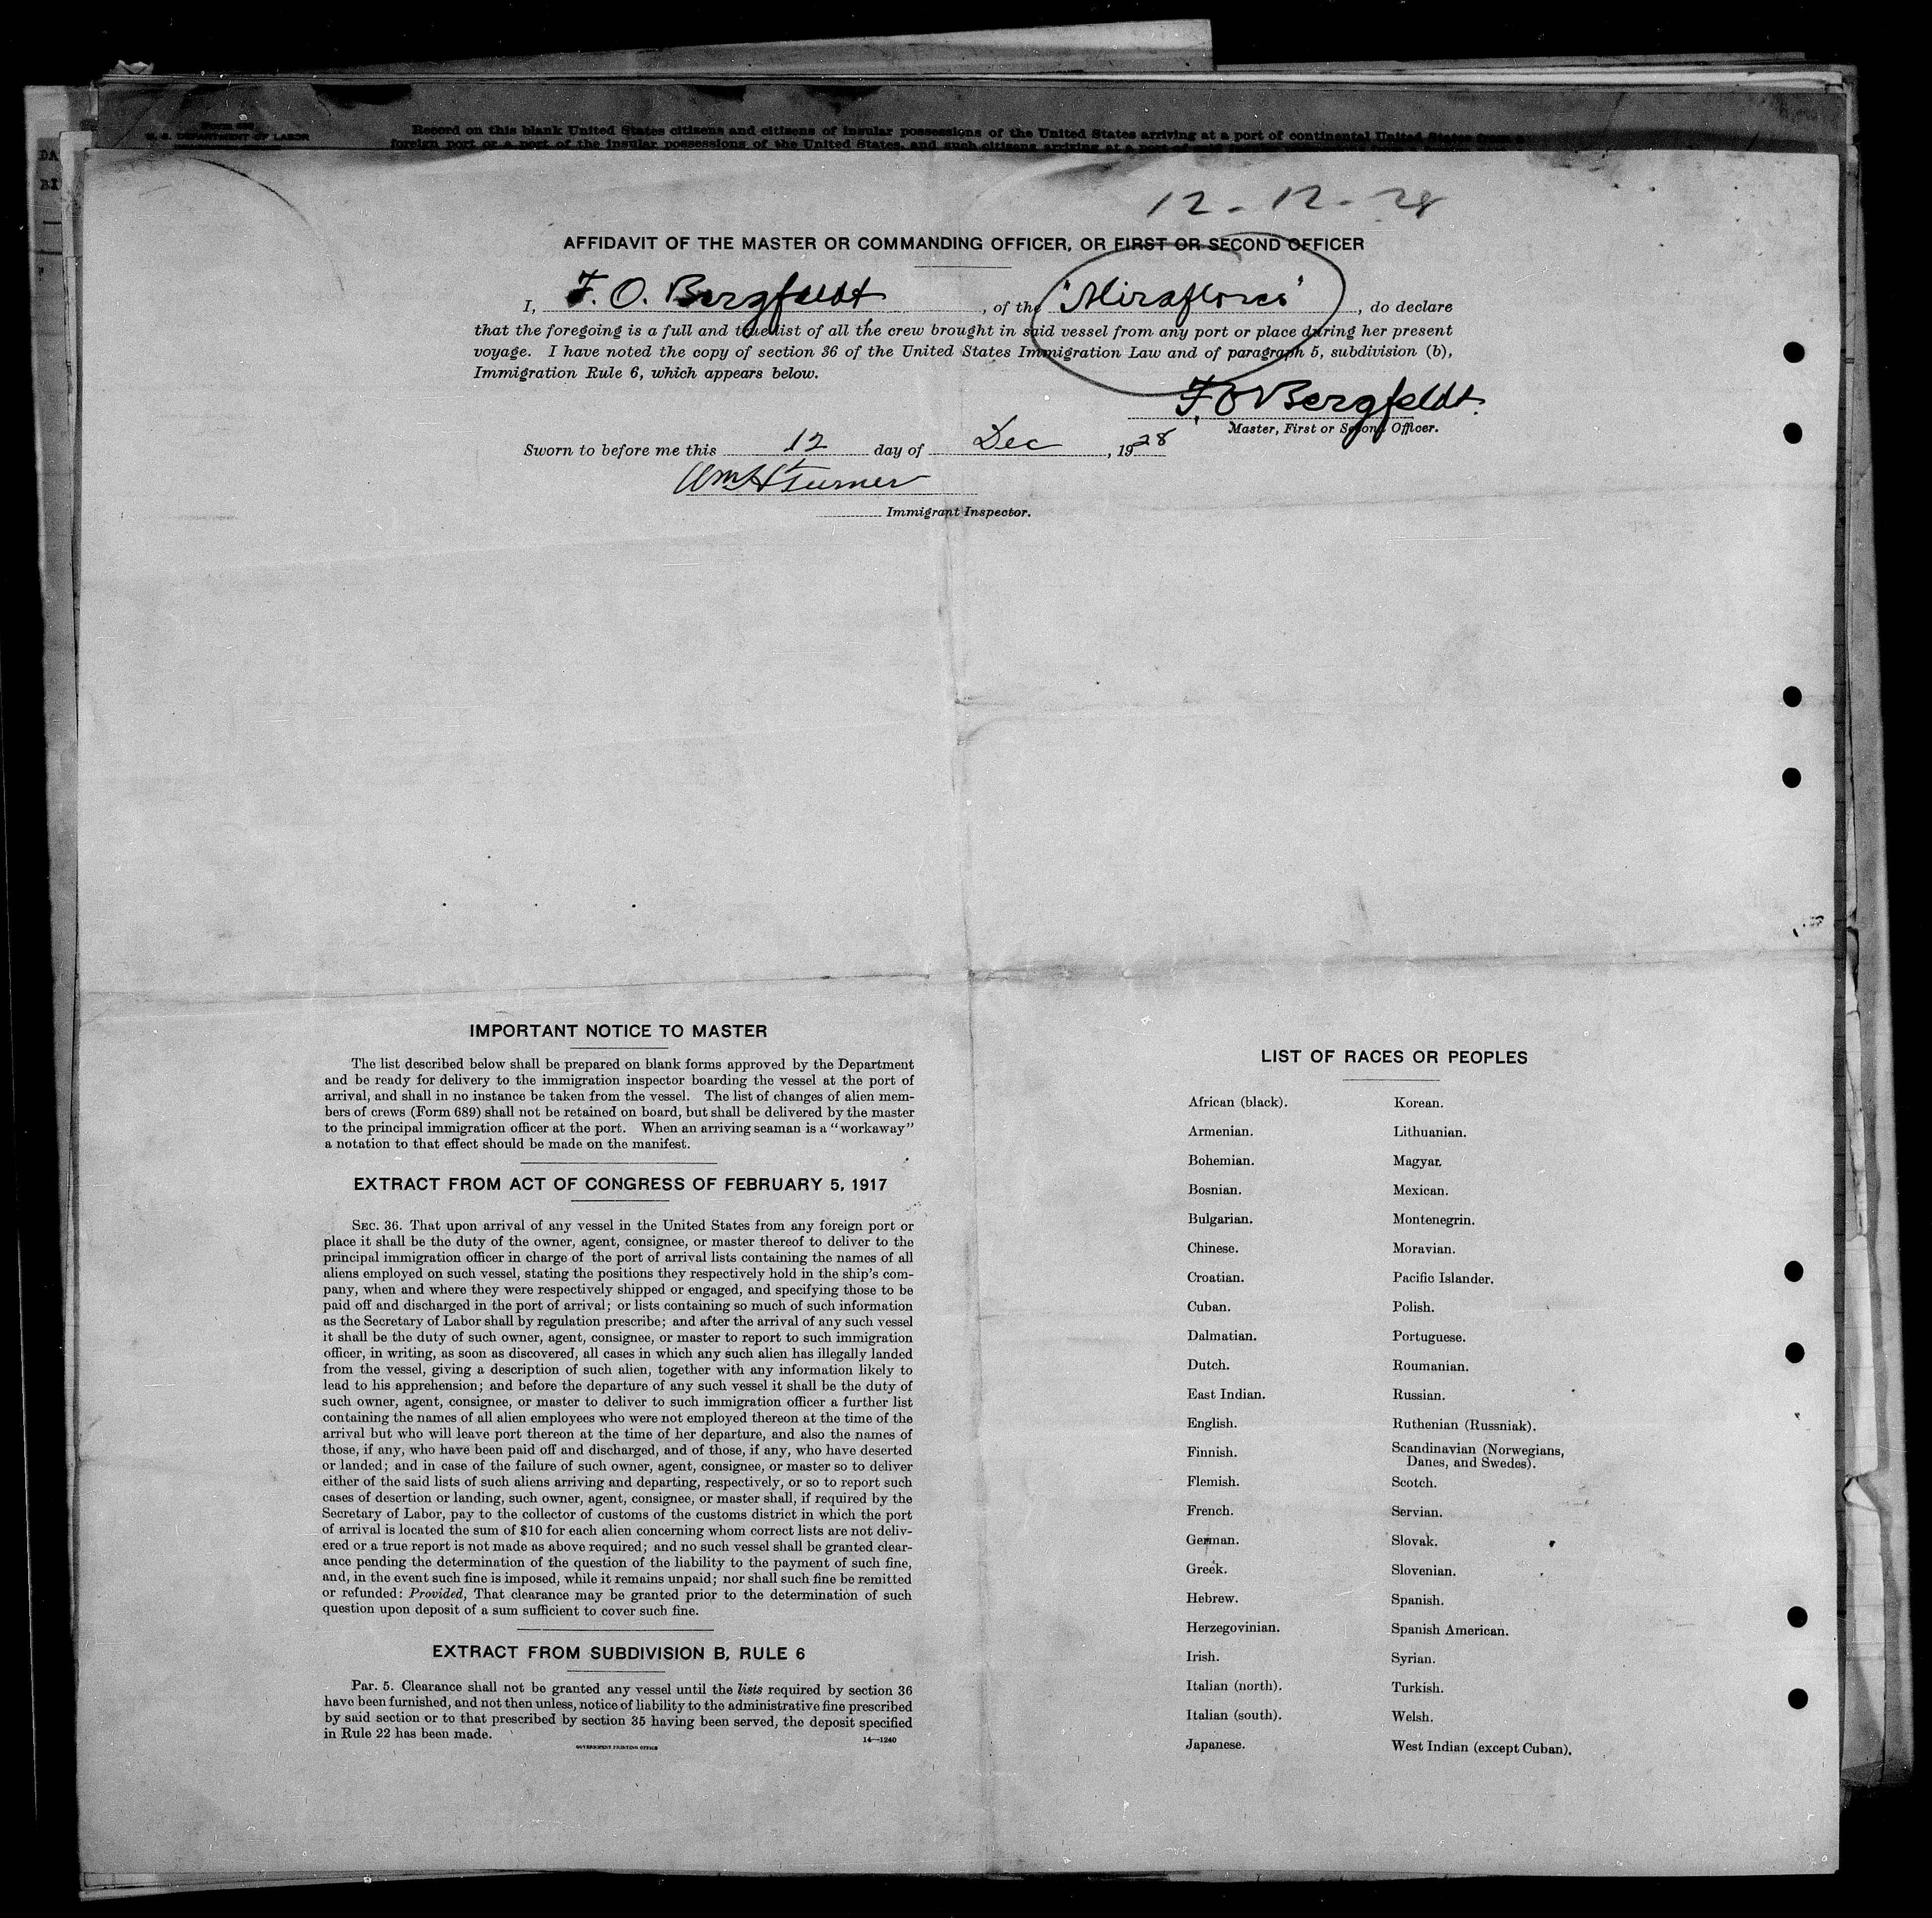 U. S. DEPARTMENT OF LABOR
Record on this blank United States citizens and citizens of insular possessions of the United States arriving at a port of continental United States from a
foreign port or a port of the insular possessions of the United States, and such citizens arriving at a port of
12-12-28
AFFIDAVIT OF THE MASTER OR COMMANDING OFFICER, OR FIRST OR SECOND OFFICER
I, F. O. Bergfeldt, of the "Miraflores", do declare
that the foregoing is a full and true list of all the crew brought in said vessel from any port or place during her present
voyage. I have noted the copy of section 36 of the United States Immigration Law and of paragraph 5, subdivision (b),
Immigration Rule 6, which appears below.
F. O Bergfeldt.
Master, First or Second Officer.
Sworn to before me this 12 day of Dec, 1928
Wm H Turner
Immigrant Inspector.
IMPORTANT NOTICE TO MASTER
The list described below shall be prepared on blank forms approved by the Department
and be ready for delivery to the immigration inspector boarding the vessel at the port of
arrival, and shall in no instance be taken from the vessel. The list of changes of alien mem-
bers of crews (Form 689) shall not be retained on board, but shall be delivered by the master
to the principal immigration officer at the port. When an arriving seaman is a "workaway"
a notation to that effect should be made on the manifest.
EXTRACT FROM ACT OF CONGRESS OF FEBRUARY 5, 1917
SEC. 36. That upon arrival of any vessel in the United States from any foreign port or
place it shall be the duty of the owner, agent, consignee, or master thereof to deliver to the
principal immigration officer in charge of the port of arrival lists containing the names of all
aliens employed on such vessel, stating the positions they respectively hold in the ship's com-
pany, when and where they were respectively shipped or engaged, and specifying those to be
paid off and discharged in the port of arrival; or lists containing so much of such information
as the Secretary of Labor shall by regulation prescribe; and after the arrival of any such vessel
it shall be the duty of such owner, agent, consignee, or master to report to such immigration
officer, in writing, as soon as discovered, all cases in which any such alien has illegally landed
from the vessel, giving a description of such alien, together with any information likely to
lead to his apprehension; and before the departure of any such vessel it shall be the duty of
such owner, agent, consignee, or master to deliver to such immigration officer a further list
containing the names of all alien employees who were not employed thereon at the time of the
arrival but who will leave port thereon at the time of her departure, and also the names of
those, if any, who have been paid off and discharged, and of those, if any, who have deserted
or landed; and in case of the failure of such owner, agent, consignee, or master so to deliver
either of the said lists of such aliens arriving and departing, respectively, or so to report such
cases of desertion or landing, such owner, agent, consignee, or master shall, if required by the
Secretary of Labor, pay to the collector of customs of the customs district in which the port
of arrival is located the sum of $10 for each alien concerning whom correct lists are not deliv-
ered or a true report is not made as above required; and no such vessel shall be granted clear-
ance pending the determination of the question of the liability to the payment of such fine,
and, in the event such fine is imposed, while it remains unpaid; nor shall such fine be remitted
or refunded: Provided, That clearance may be granted prior to the determination of such
question upon deposit of a sum sufficient to cover such fine.
EXTRACT FROM SUBDIVISION B, RULE 6
Par. 5. Clearance shall not be granted any vessel until the lists required by section 36
have been furnished, and not then unless, notice of liability to the administrative fine prescribed
by said section or to that prescribed by section 35 having been served, the deposit specified
in Rule 22 has been made.
14—1240
GOVERNMENT PRINTING OFFICE
LIST OF RACES OR PEOPLES
African (black).
Armenian.
Bohemian.
Bosnian.
Bulgarian.
Chinese.
Croatian.
Cuban.
Dalmatian.
Dutch.
East Indian.
English.
Finnish.
Flemish.
French.
German.
Greek.
Hebrew.
Herzegovinian.
Irish.
Italian (north).
Italian (south).
Japanese.
Korean.
Lithuanian.
Magyar.
Mexican.
Montenegrin.
Moravian.
Pacific Islander.
Polish.
Portuguese.
Roumanian.
Russian.
Ruthenian (Russniak).
Scandinavian (Norwegians,
Danes, and Swedes).
Scotch.
Servian.
Slovak.
Slovenian.
Spanish.
Spanish American.
Syrian.
Turkish.
Welsh.
West Indian (except Cuban).